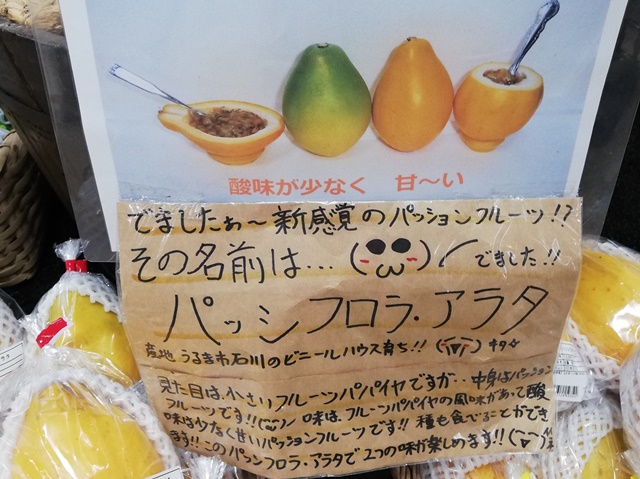 酸味が少なく 甘～い
でましたぉ～新感覚のパッションフルーツ!?
その名前は…(●ω●)ノでました!!
パッシフロラ・アラタ
産地 うるま市石川のビニールハウス育ち!!(´▽`)キタ☆
見た目は、小さいフルーツパパイヤですが‥中身はパッション
フルーツです!!(´ω`)ノ 味は、フルーツパパイヤの風味があって酸
味は少なく甘いパッションフルーツです!! 種も食べることができ
ます!!このパッシフロラ・アラタで2つの味が楽しめます!!(´▽`)